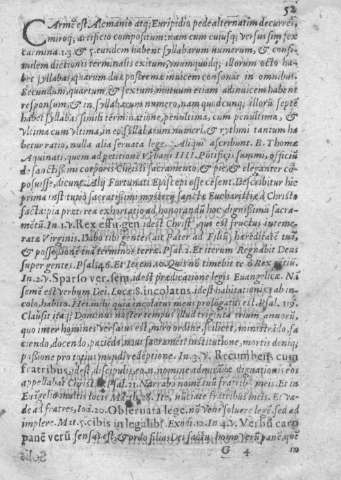 52
Carmē est Alcmanio atq; Euripidio pede alternatim decurrēs,
miroq; artificio compositum: nam cum cuiusq; versus sim sex
carmina 1.3 & 5. eundem habent syllabarum numerum, & consi-
milem dictionū terminalis exitum, vnumquodq; illorum octo ha-
bet syllabas, quarum duæ postremæ inuicem consonāt in omnibus.
Secundum, quartum, & sextum mutuum etiam ad inuicem habent
responsum, & in syllabarum numero, nam quodcunq; illorū septē
habet syllabas simili terminatione, penultima, cum penultima, &
vltima cum vltima, in eo syllabarū numeri, & rythmi tantum ha
betur ratio, nulla alia seruata lege. Aliqui ascribunt B. Thomæ
Aquinati, quem ad petitionē Vrbani IIII. Potificis summi, officiū
de sanctissimi corporis Christi sacramento, & piè, & eleganter cō
posuisse, aiunt. Alij Fortunati Episcopi esse cēsent. Describitur hic
prima institutio sacratissimi mysterij sanctæ Eucharistiæ à Christo
facta: pia præterea exhortatio ad honorandū hoc dignissimū sacra-
mētū. In .1. v. Rex effu. gen. idest Christus, qui est fructus intеme-
ratæ Virginis. Dabo tibi gentes (ait Pater ad Filiū) hæreditatē tuā,
& possessionē tuā terminos terræ. Psal. 2. Et iterum Regnabit Deus
super gentes. Psal. 46. Et Ierem. 10. Quis nō timebit te ô Rex gētiū.
In .2. v. Sparso ver. sem. idest prædicatione legis Euangelicæ. Nā
semē est verbum Dei. Lucæ 8. incolatus idest habitationis, ab in-
colo, habito. Hei mihi quia incolatus meus prolōgatus est. Psal. 119.
Clausit itaq; Dominus noster tempus illud triginta trium, annorū,
quo inter homines versatus est, miro ordine, scilicet, ministrādo, fa
ciendo, docendo, patiēdo, miro sacramēti institutione, mortis deniq;
passione pro totius mundi redēptione. In .3. v. Recumbens cum
fratribus, idest, discipulis, eo .n. nomine admiratione dignationis eos
appellabat Christus. Psal. 21. Narrabo nomē tuū fratribus meis. Et in
Euāgelio multis locis Matth. 28. Ite, nunciate fratribus meis. Et va-
de ad fratres, Ioā. 20. Obseruata lege. nō veni soluere legē, sed ad
implere. Mat. 5. cibis in legalib. Exodi. 12. In .4. v. Verbū caro
panē verū sensus est, & pro filius Dei factus. Immo verū panē, quē
G 4 in